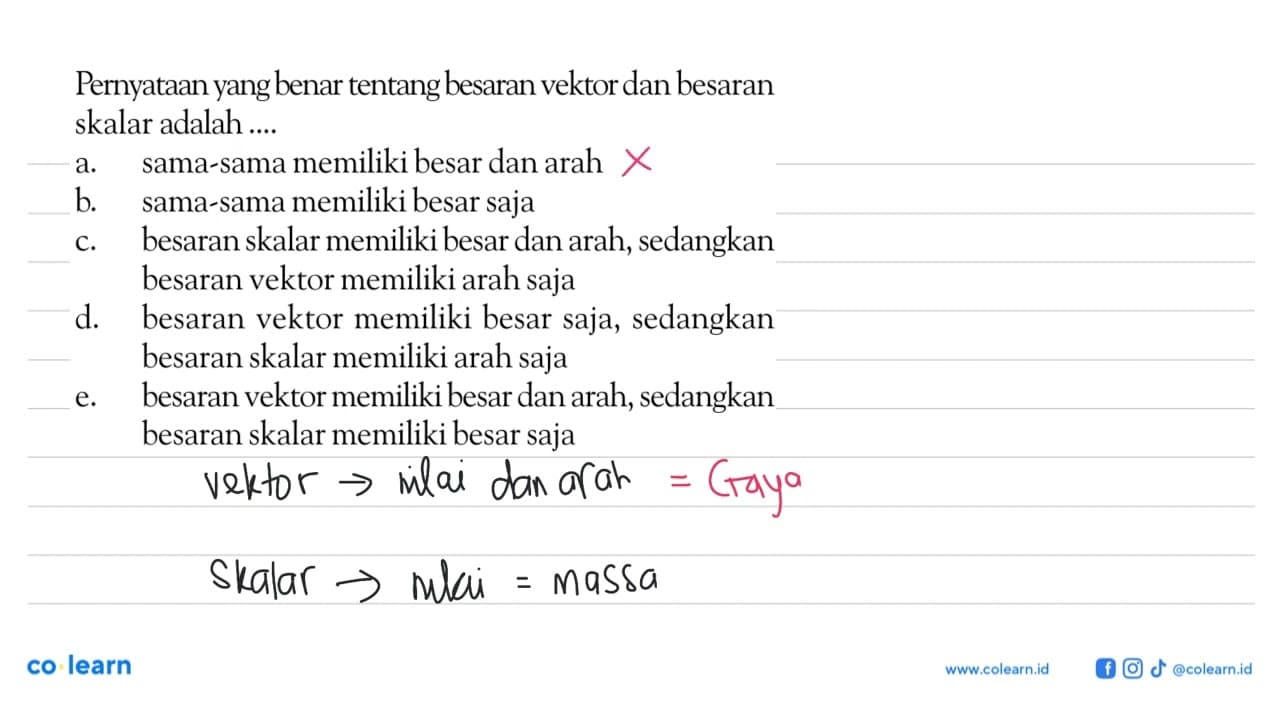 Pernyataan yang benar tentang besaran vektor dan besaran
skalar adalah ....
a. sama-sama memiliki besar dan arah X
b. sama-sama memiliki besar saja
c. besaran skalar memiliki besar dan arah, sedangkan
besaran vektor memiliki arah saja
d. besaran vektor memiliki besar saja, sedangkan
besaran skalar memiliki arah saja
e. besaran vektor memiliki besar dan arah, sedangkan
besaran skalar memiliki besar saja
vektor → nilai dan arah = Gaya
Skalar → nilai = massa
co·learn
www.colearn.id @colearn.id